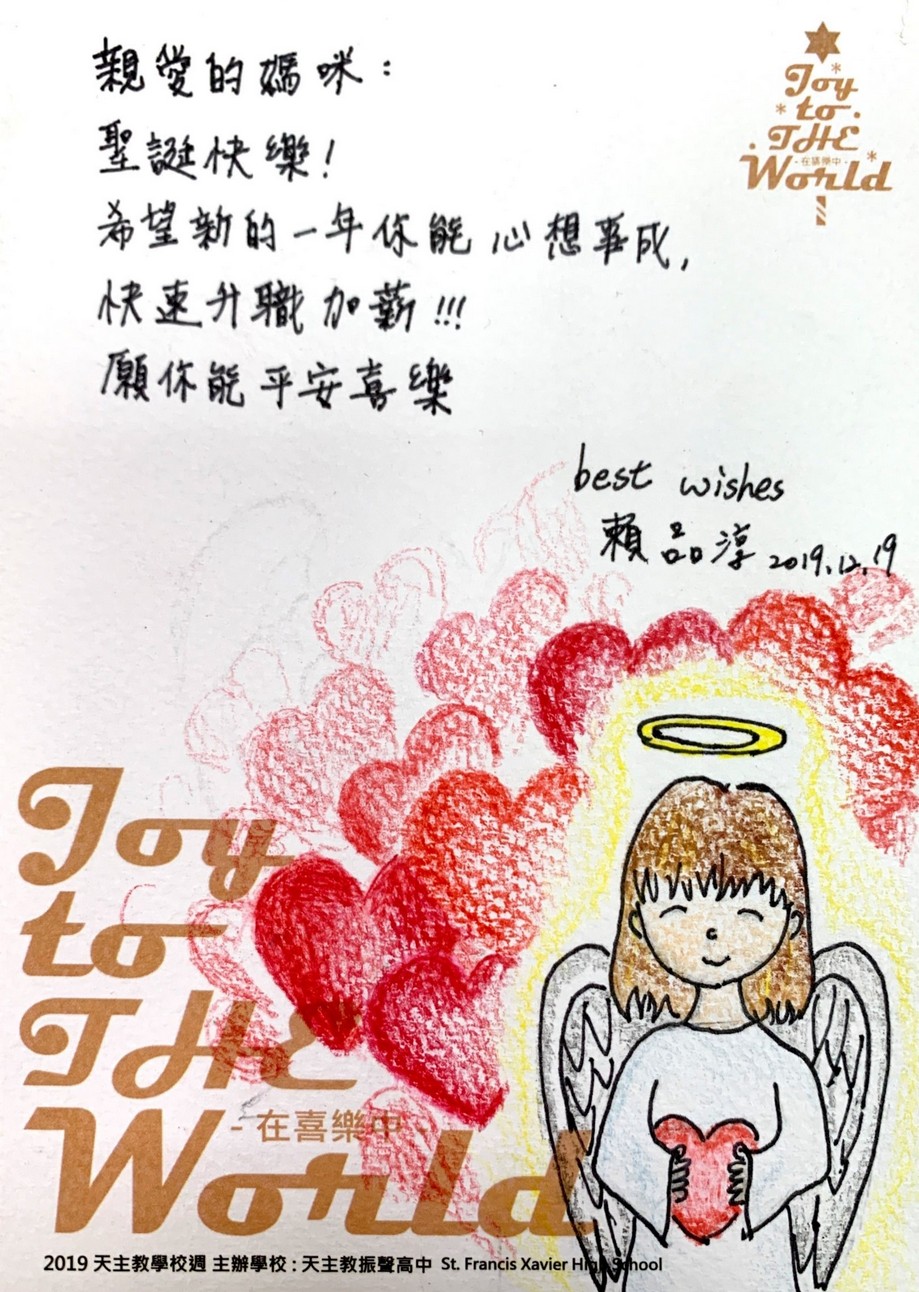 親愛的媽咪：
聖誕快樂！
希望新的一年你能心想事成，
快速升職加薪!!!
願你能平安喜樂
best wishes
賴品淳 2019.12.19
Joy
to
THE
-在喜樂中-
World
Joy
to
THE
-在喜樂中-
World
2019 天主教學校週 主辦學校：天主教振聲高中 St. Francis Xavier High School